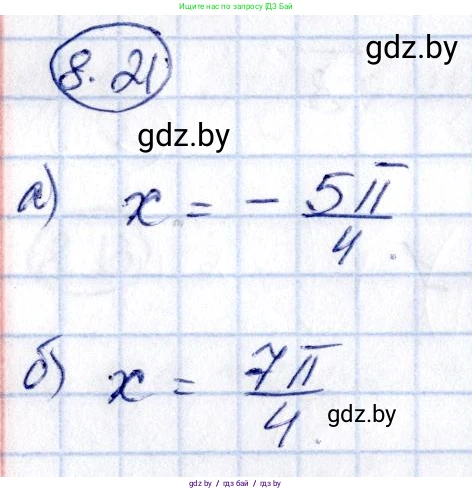 Ищите нас по запросу ГДЗ Бай
8.21
gdz.by
gdz.by
а) x = - 5π/4.
б) x = 7π/4.
gdz.by
gdz.by / гдз.бай / gdz.by / гдз.бай